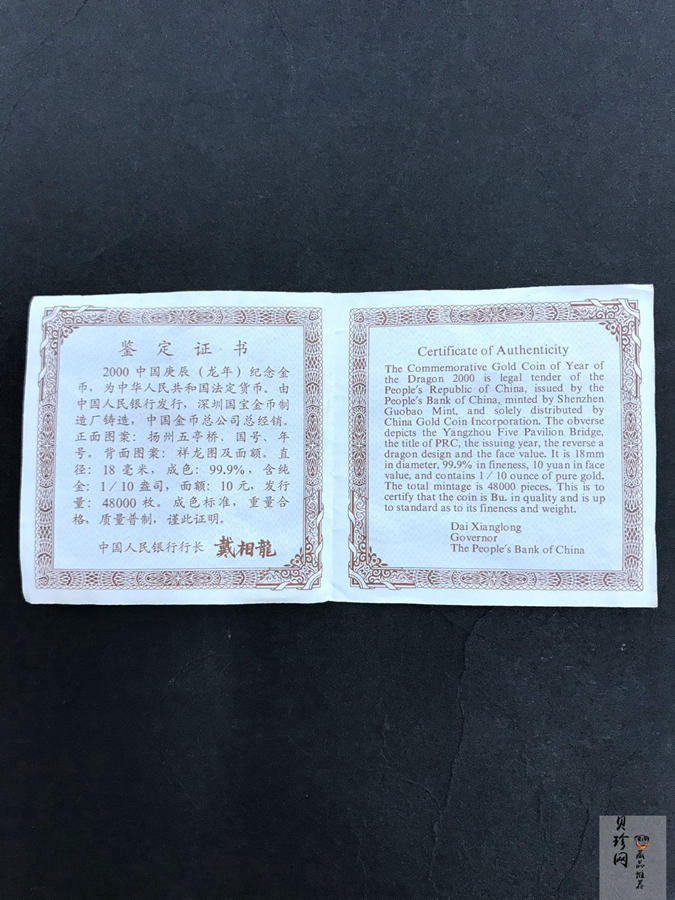 鉴定证书
2000 中国庚辰（龙年）纪念金
币，为中华人民共和国法定货币。由
中国人民银行发行，深圳国宝金币制
造厂铸造，中国金币总公司总经销。
正面图案：扬州五亭桥、国号、年
号。背面图案：祥龙图及面额。直
径：18 毫米，成色：99.9%，含纯
金：1／10 盎司，面额：10 元，发行
量：48000 枚。成色标准，重量合
格，质量普制，谨此证明。
中国人民银行行长 戴相龍
Certificate of Authenticity
The Commemorative Gold Coin of Year of
the Dragon 2000 is legal tender of the
People's Republic of China, issued by the
People's Bank of China, minted by Shenzhen
Guobao Mint, and solely distributed by
China Gold Coin Incorporation. The obverse
depicts the Yangzhou Five Pavilion Bridge,
the title of PRC, the issuing year, the reverse a
dragon design and the face value. It is 18mm
in diameter, 99.9% in fineness, 10 yuan in face
value, and contains 1／10 ounce of pure gold.
The total mintage is 48000 pieces. This is to
certify that the coin is Bu. in quality and is up
to standard as to its fineness and weight.
Dai Xianglong
Governor
The People's Bank of China
贝珍网
藏品推荐